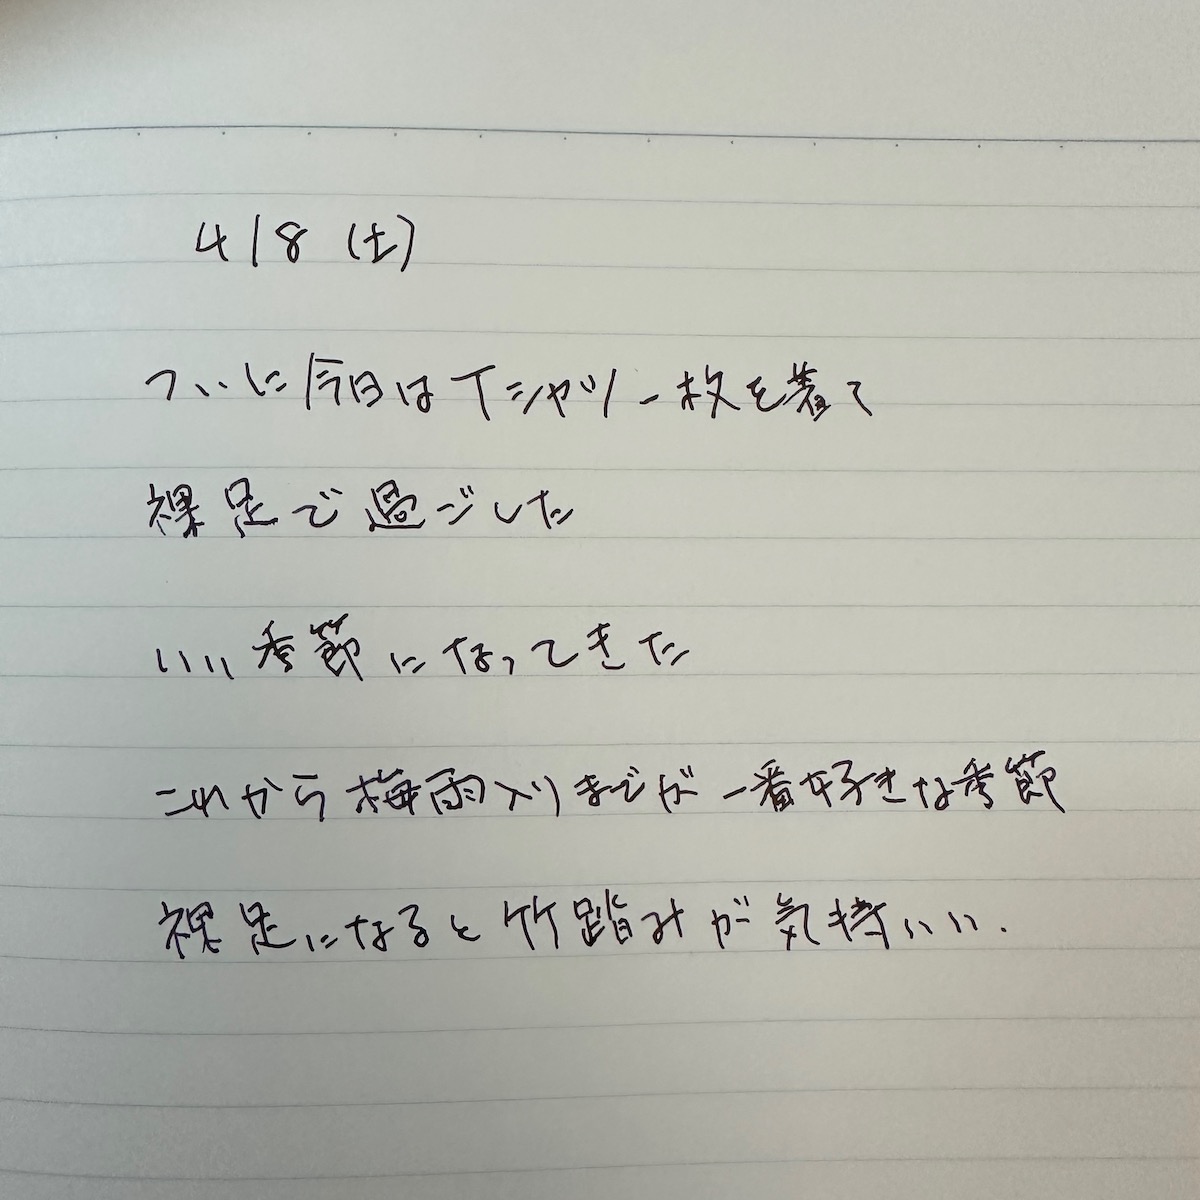 4/8 (土)
ついに今日はTシャツ一枚を着て
裸足で過ごした
いい季節になってきた
これから梅雨入りまでが一番好きな季節
裸足になると竹踏みが気持いい.